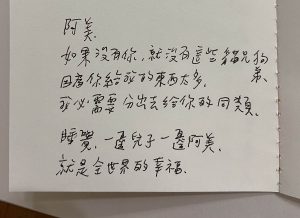 阿美、
如果沒有你，就沒有這些貓兄狗弟、
因為你給我的東西太多，
我必需要分出去給你的同類、
睡覺，一邊兒子一邊阿美、
就是全世界的幸福、